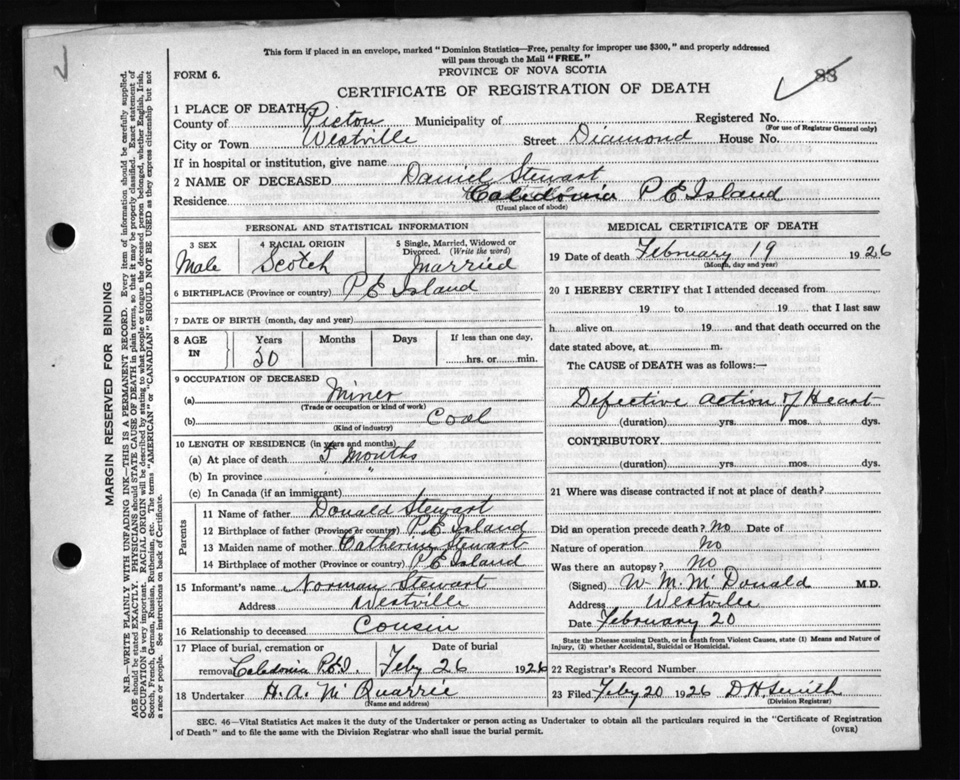 This form if placed in an envelope, marked "Dominion Statistics—Free, penalty for improper use $300," and properly addressed
will pass through the Mail "FREE."
PROVINCE OF NOVA SCOTIA
FORM 6.
88
CERTIFICATE OF REGISTRATION OF DEATH
1 PLACE OF DEATH
County of Pictou Municipality of Registered No.
(For use of Registrar General only)
City or Town Westville Street Diamond House No.
If in hospital or institution, give name
2 NAME OF DECEASED Daniel Stewart
Residence Caledonia P E Island
(Usual place of abode)
PERSONAL AND STATISTICAL INFORMATION
3 SEX Male
4 RACIAL ORIGIN Scotch
5 Single, Married, Widowed or Divorced. (Write the word) Married
6 BIRTHPLACE (Province or country) P E Island
7 DATE OF BIRTH (month, day and year)
8 AGE IN Years Months Days If less than one day,
hrs. or min.
9 OCCUPATION OF DECEASED
(a) Miner
(Trade or occupation or kind of work)
(b) Coal
(Kind of industry)
10 LENGTH OF RESIDENCE (in years and months)
(a) At place of death 5 Months
(b) In province " "
(c) In Canada (if an immigrant)
Parents
11 Name of father Donald Stewart
12 Birthplace of father (Province or country) P. E Island
13 Maiden name of mother Catherine Stewart
14 Birthplace of mother (Province or country) P E Island
15 Informant's name Norman Stewart
Address Westville
16 Relationship to deceased Cousin
17 Place of burial, cremation or removal Caledonia P.E.I.
Date of burial Feby 26 1926
18 Undertaker H. A. McQuarrie
(Name and address)
MEDICAL CERTIFICATE OF DEATH
19 Date of death February 19 1926
(Month, day and year)
20 I HEREBY CERTIFY that I attended deceased from
19 to 19 that I last saw
h alive on 19 and that death occurred on the
date stated above, at m.
The CAUSE of DEATH was as follows:—
Defective Action of Heart
(duration) yrs. mos. dys.
CONTRIBUTORY
(duration) yrs. mos. dys.
21 Where was disease contracted if not at place of death?
Did an operation precede death? No Date of
Nature of operation No
Was there an autopsy? No
(Signed) W. M. McDonald M.D.
Address Westville
Date February 20
State the Disease causing Death, or in death from Violent Causes, state (1) Means and Nature of
Injury, (2) whether Accidental, Suicidal or Homicidal.
22 Registrar's Record Number
23 Filed Feby 20 1926 D H Smith
(Division Registrar)
SEC. 46—Vital Statistics Act makes it the duty of the Undertaker or person acting as Undertaker to obtain all the particulars required in the "Certificate of Registration
of Death" and to file the same with the Division Registrar who shall issue the burial permit.
(OVER)
MARGIN RESERVED FOR BINDING
N.B.—WRITE PLAINLY WITH UNFADING INK—THIS IS A PERMANENT RECORD. Every item of information should be carefully supplied.
AGE should be stated EXACTLY. PHYSICIANS should STATE CAUSE OF DEATH in plain terms, so that it may be properly classified. Exact statement of
OCCUPATION is very important. RACIAL ORIGIN will be described by stating to what people or tongue the deceased person belonged, whether English, Irish,
Scotch, French, German, Russian, Ruthenian, etc. The terms "AMERICAN" or "CANADIAN" SHOULD NOT BE USED as they express citizenship but not
a race or people. See instructions on back of Certificate.